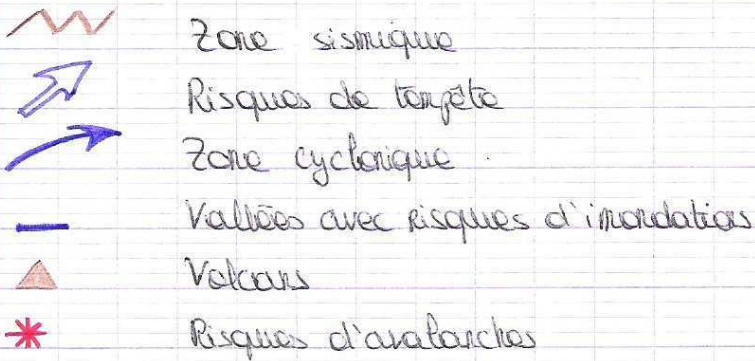 Zone sismique
Risques de tempête
Zone cyclonique.
Vallées avec risques d'inondations
Volcans
Risques d'avalanches